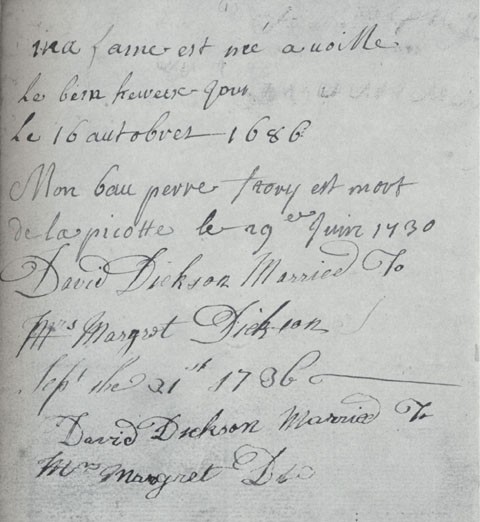 ma fame est né a voille
Le bein heureux Jour
Le 16 autobret 1686
Mon bau perre frory est mort
de la picotte le 29er Juin 1730
David Dickson Married To
Mrs Margret Dickson
Sept the 21st 1736
David Dickson Married To
Mrs Margret